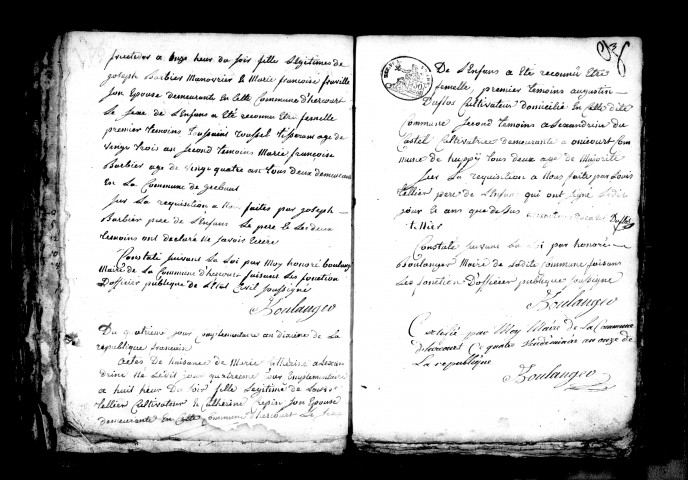 fructidor a onze heur du soir fille Légitimes de
joseph Barbier Manouvrier & Marie françoise
Son Epouse demeurante en Cette Commune d'hercourt
Le Sexe de L'Enfans a Eté reconnu Etre femelle
premier temoins toussaint Tisseran age de
vingt trois an Second temoins Marie françoise
Barbier age de vingt quatre an tous deux demeurant
En La Commune de
Sur La requisition a Nou faites par joseph
Barbier pere de L'Enfans Le pere & Les deux
temoins ont declaré Ne Savoir Ecrire
Constaté Suivant La Loi par Moy honoré boulanger
Maire de La Commune d'hercourt faisant Les fonction
D'officier publique de L'Etat Civil Soussigné
Boulanger
Du quatrieme jour Complementaire an dixieme de La
republique francaise
Actes de Naissance de Marie Catherine
Née Le dit jour quatrieme jour Complementaire
a huit heur du Soir fille Legitime de Louis
tellier Cultivateur & Catherine Son Epouse
demeurante En Cette Commune d'hercourt Le Sexe
De L'Enfans a Eté reconnu Etre
femelle, premier temoins augustin
Duflos Cultivateur domicilié en Cette dite
Commune Second temoins alexandrine du
Castel Cultivatrice demeurante a Com
mune de huppy tous deux age de Majorité
Sur La requisition a Nous faite par Louis
tellier pere de L'Enfans qui ont Signé Ledit
jour & ans que dessus Duflos
tellier
Constaté Suivant La Loi par honoré
Boulanger Maire de Ladite Commune faisant
Les fonction D'officier publique Soussigné
Boulanger
par Moy Maire de La Commune
d'harcourt Ce quatre Vendemiaire an onze de
La republique
Boulanger